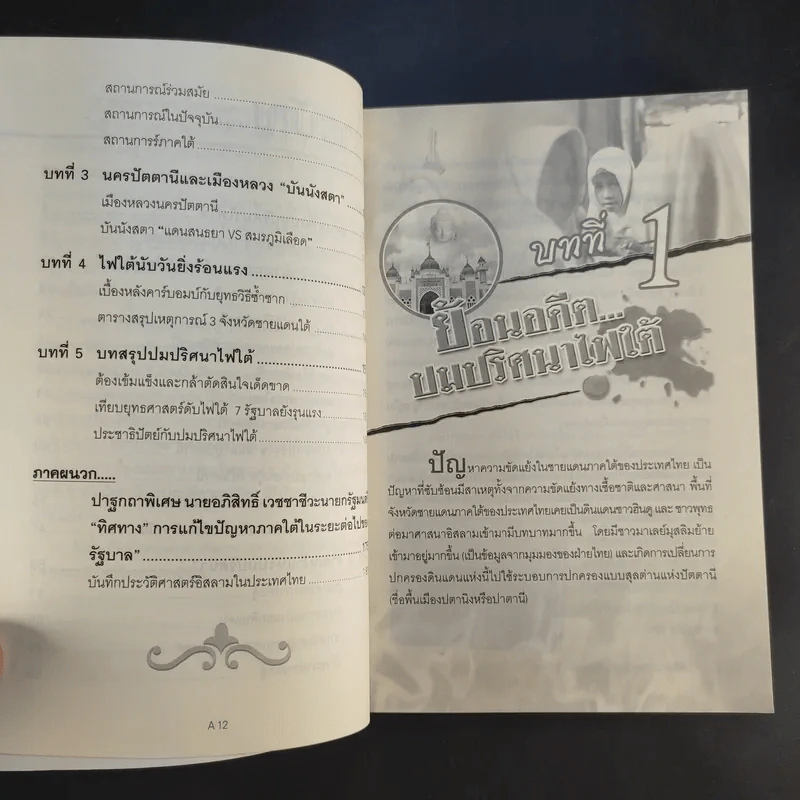 สถานการณ์ร่วมสมัย
สถานการณ์ในปัจจุบัน
สถานการร์ภาคใต้
บทที่ 3 นครปัตตานีและเมืองหลวง “บันนังสตา”
เมืองหลวงนครปัตตานี
บันนังสตา “แดนสนธยา VS สมรภูมิเลือด”
บทที่ 4 ไฟใต้นับวันยิ่งร้อนแรง
เบื้องหลังคาร์บอมบ์กับยุทธวิธีซ้ำซาก
ตารางสรุปเหตุการณ์ 3 จังหวัดชายแดนใต้
บทที่ 5 บทสรุปปมปริศนาไฟใต้
ต้องเข้มแข็งและกล้าตัดสินใจเด็ดขาด
เทียบยุทธศาสตร์ดับไฟใต้ 7 รัฐบาลยังรุนแรง
ประชาธิปัตย์กับปมปริศนาไฟใต้
ภาคผนวก.....
ปาฐกถาพิเศษ นายอภิสิทธิ์ เวชชาชีวะนายกรัฐมนตรี
“ทิศทาง” การแก้ไขปัญหาภาคใต้ในระยะต่อไปของ
รัฐบาล”
บันทึกประวัติศาสตร์อิสลามในประเทศไทย
A 12
บทที่ 1
ย้อนอดีต...
ปมปริศนาไฟใต้
ปัญหาความขัดแย้งในชายแดนภาคใต้ของประเทศไทย เป็น
ปัญหาที่ซับซ้อนมีสาเหตุทั้งจากความขัดแย้งทางเชื้อชาติและศาสนา พื้นที่
จังหวัดชายแดนภาคใต้ของประเทศไทยเคยเป็นดินแดนชาวฮินดู และ ชาวพุทธ
ต่อมาศาสนาอิสลามเข้ามามีบทบาทมากขึ้น โดยมีชาวมาเลย์มุสลิมย้าย
เข้ามาอยู่มากขึ้น (เป็นข้อมูลจากมุมมองของฝ่ายไทย) และเกิดการเปลี่ยนการ
ปกครองดินแดนแห่งนี้ไปใช้ระบอบการปกครองแบบสุลต่านแห่งปัตตานี
(ชื่อพื้นเมืองปตานิงหรือปาตานี)